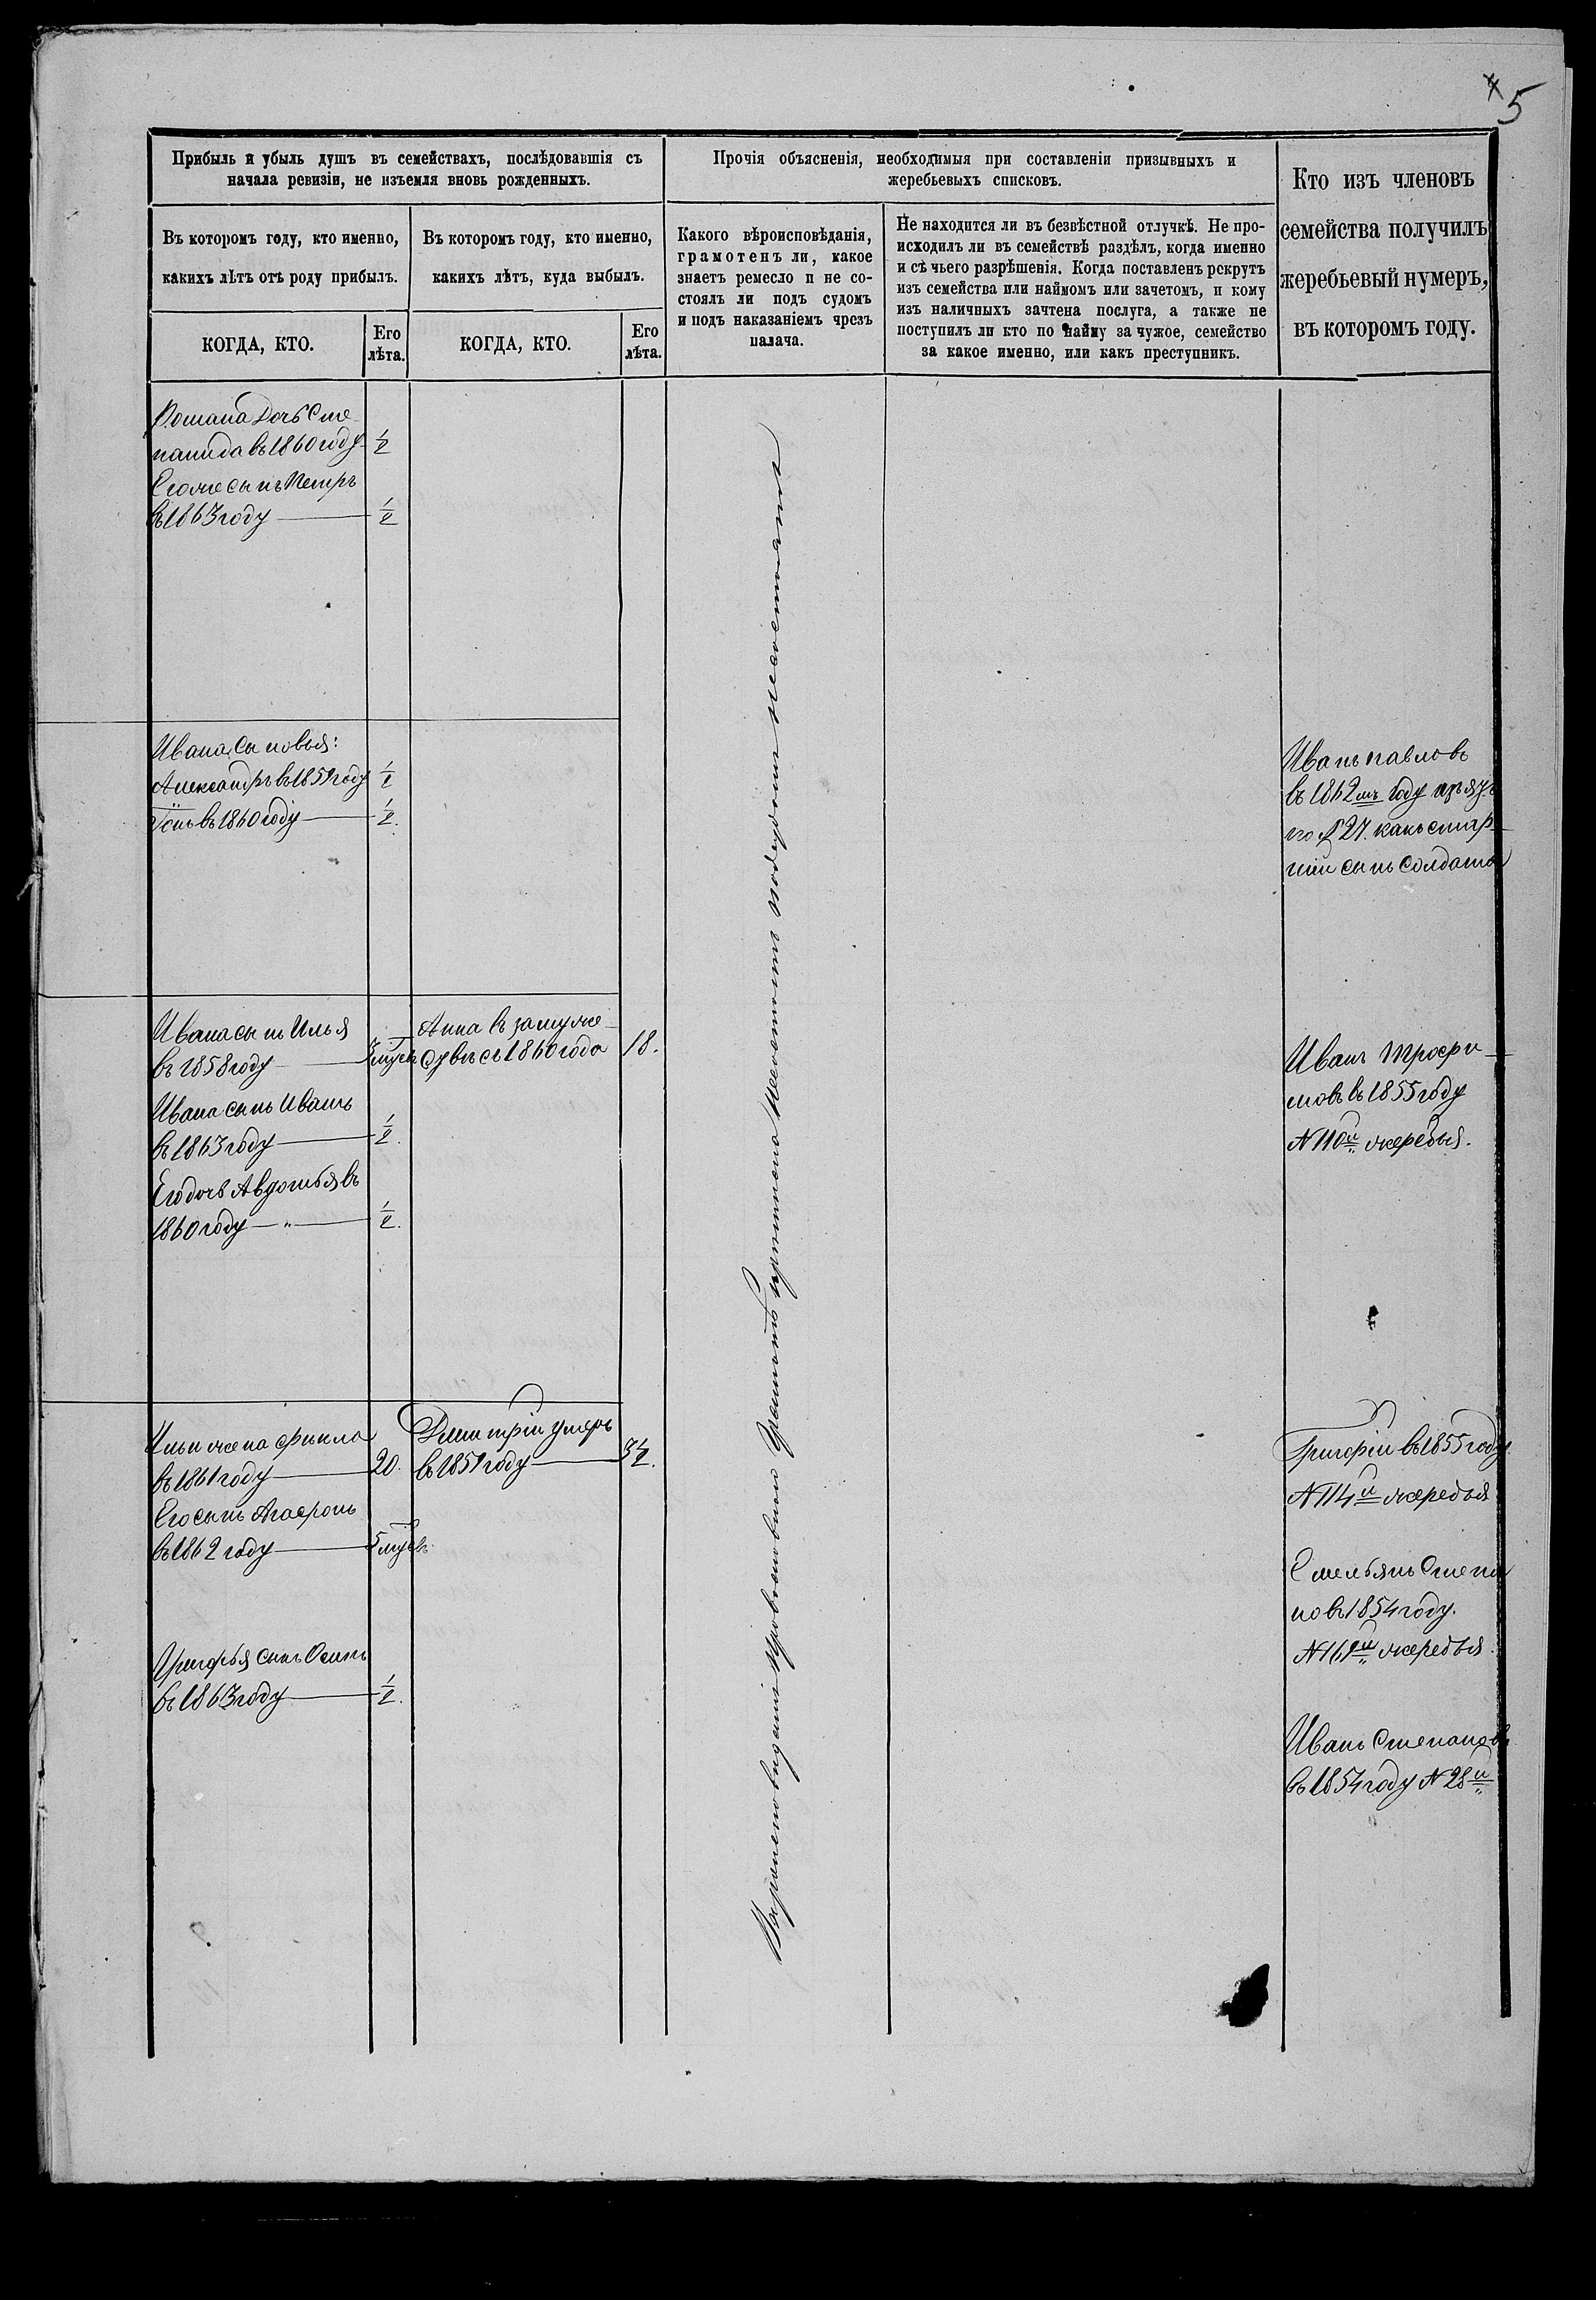 5
Прибыль и убыль душъ въ семействахъ, послѣдовавшія съ
начала ревизіи, не изъемля вновь рожденныхъ.
Прочія объясненія, необходимыя при составленіи призывныхъ и
жеребьевыхъ списковъ.
Кто изъ членовъ
семейства получилъ
жеребьевый нумеръ,
въ которомъ году.
Въ которомъ году, кто именно,
какихъ лѣтъ отъ роду прибылъ.
Въ которомъ году, кто именно,
какихъ лѣтъ, куда выбылъ.
Какого вѣроисповѣданія,
грамотенъ ли, какое
знаетъ ремесло и не со-
стоялъ ли подъ судомъ
и подъ наказаніемъ чрезъ
палача.
Не находится ли въ безвѣстной отлучкѣ. Не про-
исходилъ ли въ семействѣ раздѣлъ, когда именно
и съ чьего разрѣшенія. Когда поставленъ рекрутъ
изъ семейства или наймомъ или зачетомъ, и кому
изъ наличныхъ зачтена послуга, а также не
поступилъ ли кто по найму за чужое, семейство
за какое именно, или какъ преступникъ.
КОГДА, КТО.
Его
лѣта.
КОГДА, КТО.
Его
лѣта.
Романа дочь Сте-
панида въ 1860 году 1/2
Егоже сынъ Петръ
въ 1863 году 1/2
Ивана сыновья:
Александръ въ 1859 году 1/2
въ 1860 году 1/2.
Иванъ Павловъ
въ 1862мъ году
27. какъ стар-
шій сынъ солдата
Ивана сынъ Илья
въ 1858 году
Ивана сынъ Иванъ
въ 1863 году 1/2.
Его дочь Авдотья въ
1860 году — " — 1/2.
Анна въ замуже-
съ 1860 года 18.
Иванъ Трофи-
мовъ въ 1855 году
№ 110й жеребья.
Ильи жена Фекла
въ 1861 году 20.
Его сынъ Агафонъ
въ 1862 году
Григорья сынъ Осипъ
въ 1863 году 1/2.
Дмитрій умеръ
въ 1859 году 3 1/2.
Григорій въ 1855 году.
№ 114й жеребья
Емельянъ Степа
новъ 1854 году.
№ 169й жеребья.
Иванъ Степановъ
въ 1854 году № 28й
вѣроисповѣданія Православнаго